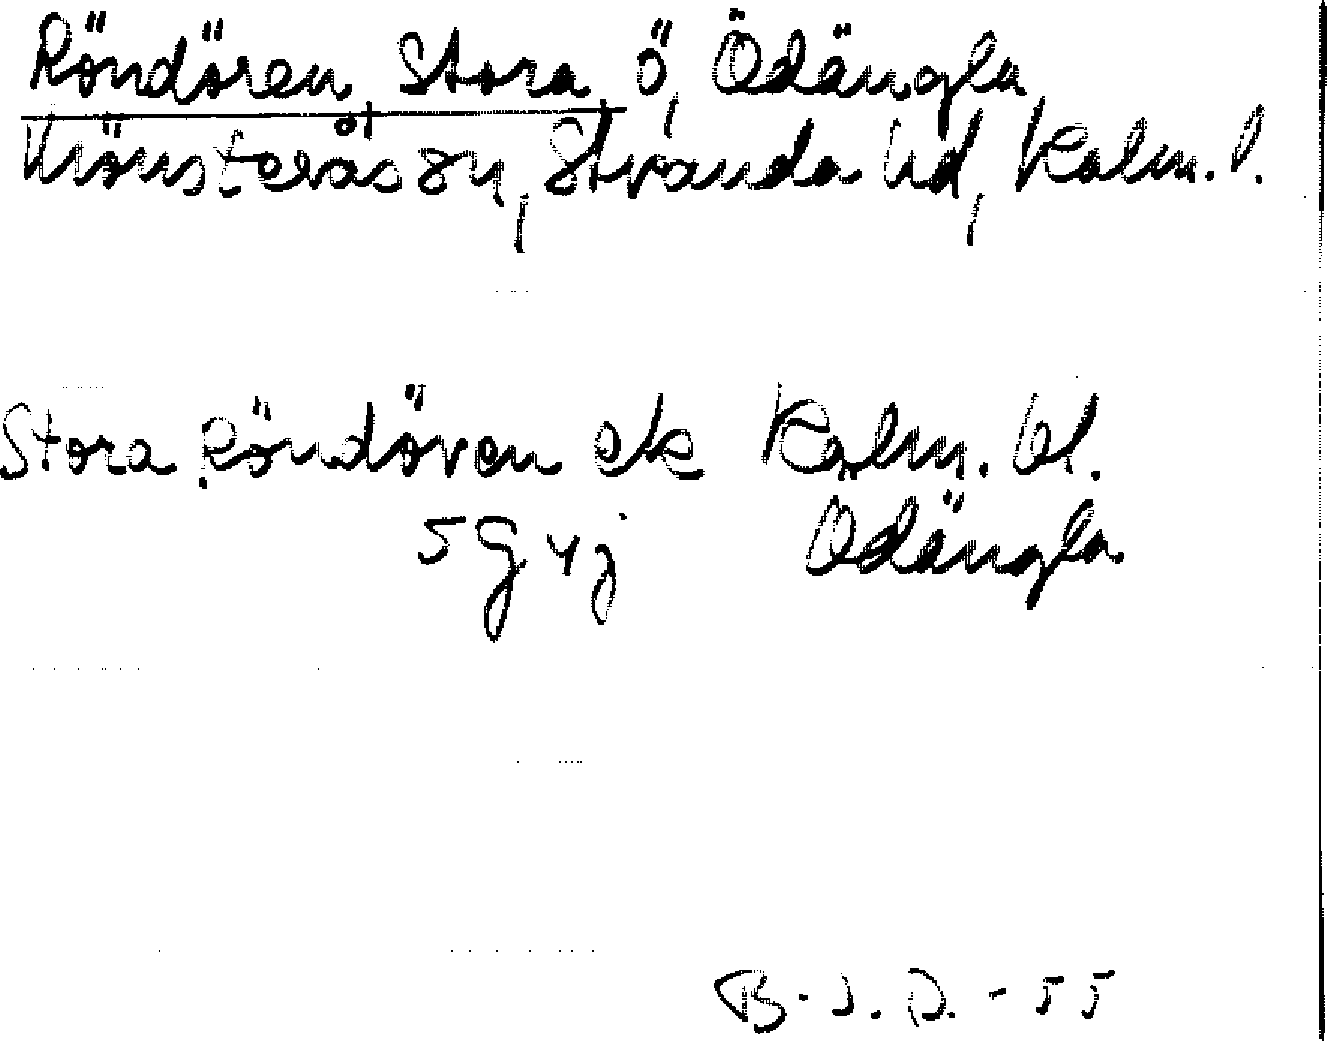 Röndören, Stora, ö, Ödängla,
Mönsterås sn, Stranda hd, Kalm. l.
Stora Röndören ek Kalm. bl.
5G4j Ödängla
B.I.D. - 55